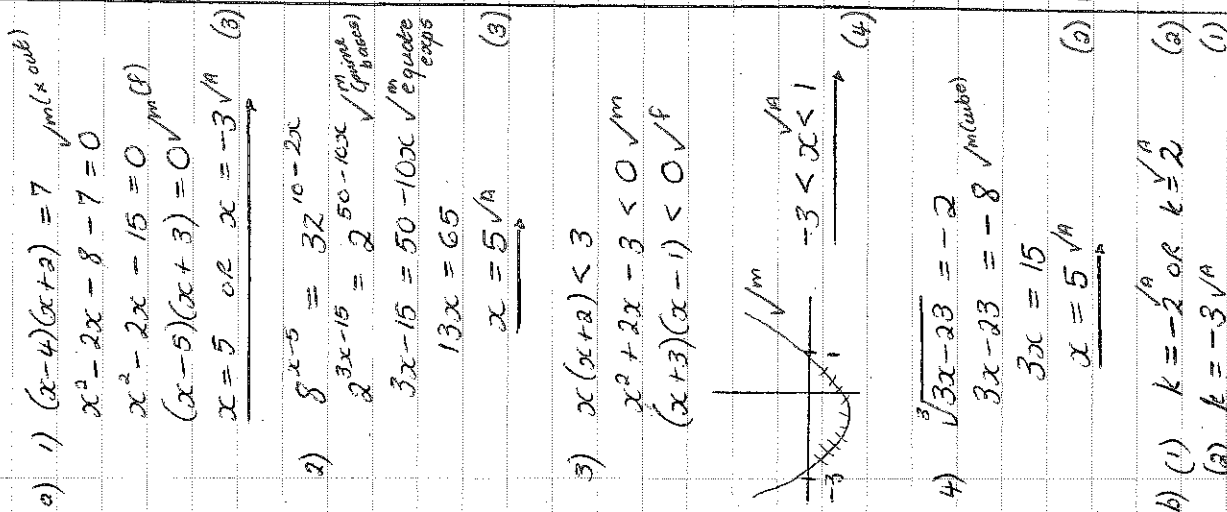 a) 1) (x-4)(x+2) = 7 √m(x out)
x² - 2x - 8 - 7 = 0
x² - 2x - 15 = 0
(x-5)(x+3) = 0 √m(f)
x = 5 or x = -3 √A (3)
2) 8^{x-5} = 32^{10-2x}
2^{3x-15} = 2^{50-10x} √m (prime bases)
3x-15 = 50-10x √m equate exps
13x = 65
x = 5 √A (3)
3) x(x+2) < 3
x² + 2x - 3 < 0 √m
(x+3)(x-1) < 0 √f
√m
-3 1
-3 < x < 1 √A (4)
4) ³√3x-23 = -2
3x-23 = -8 √m(cube)
3x = 15
x = 5 √A (2)
b) (1) k = -2 √A OR k = 2 √A (2)
(2) k = -3 √A (1)